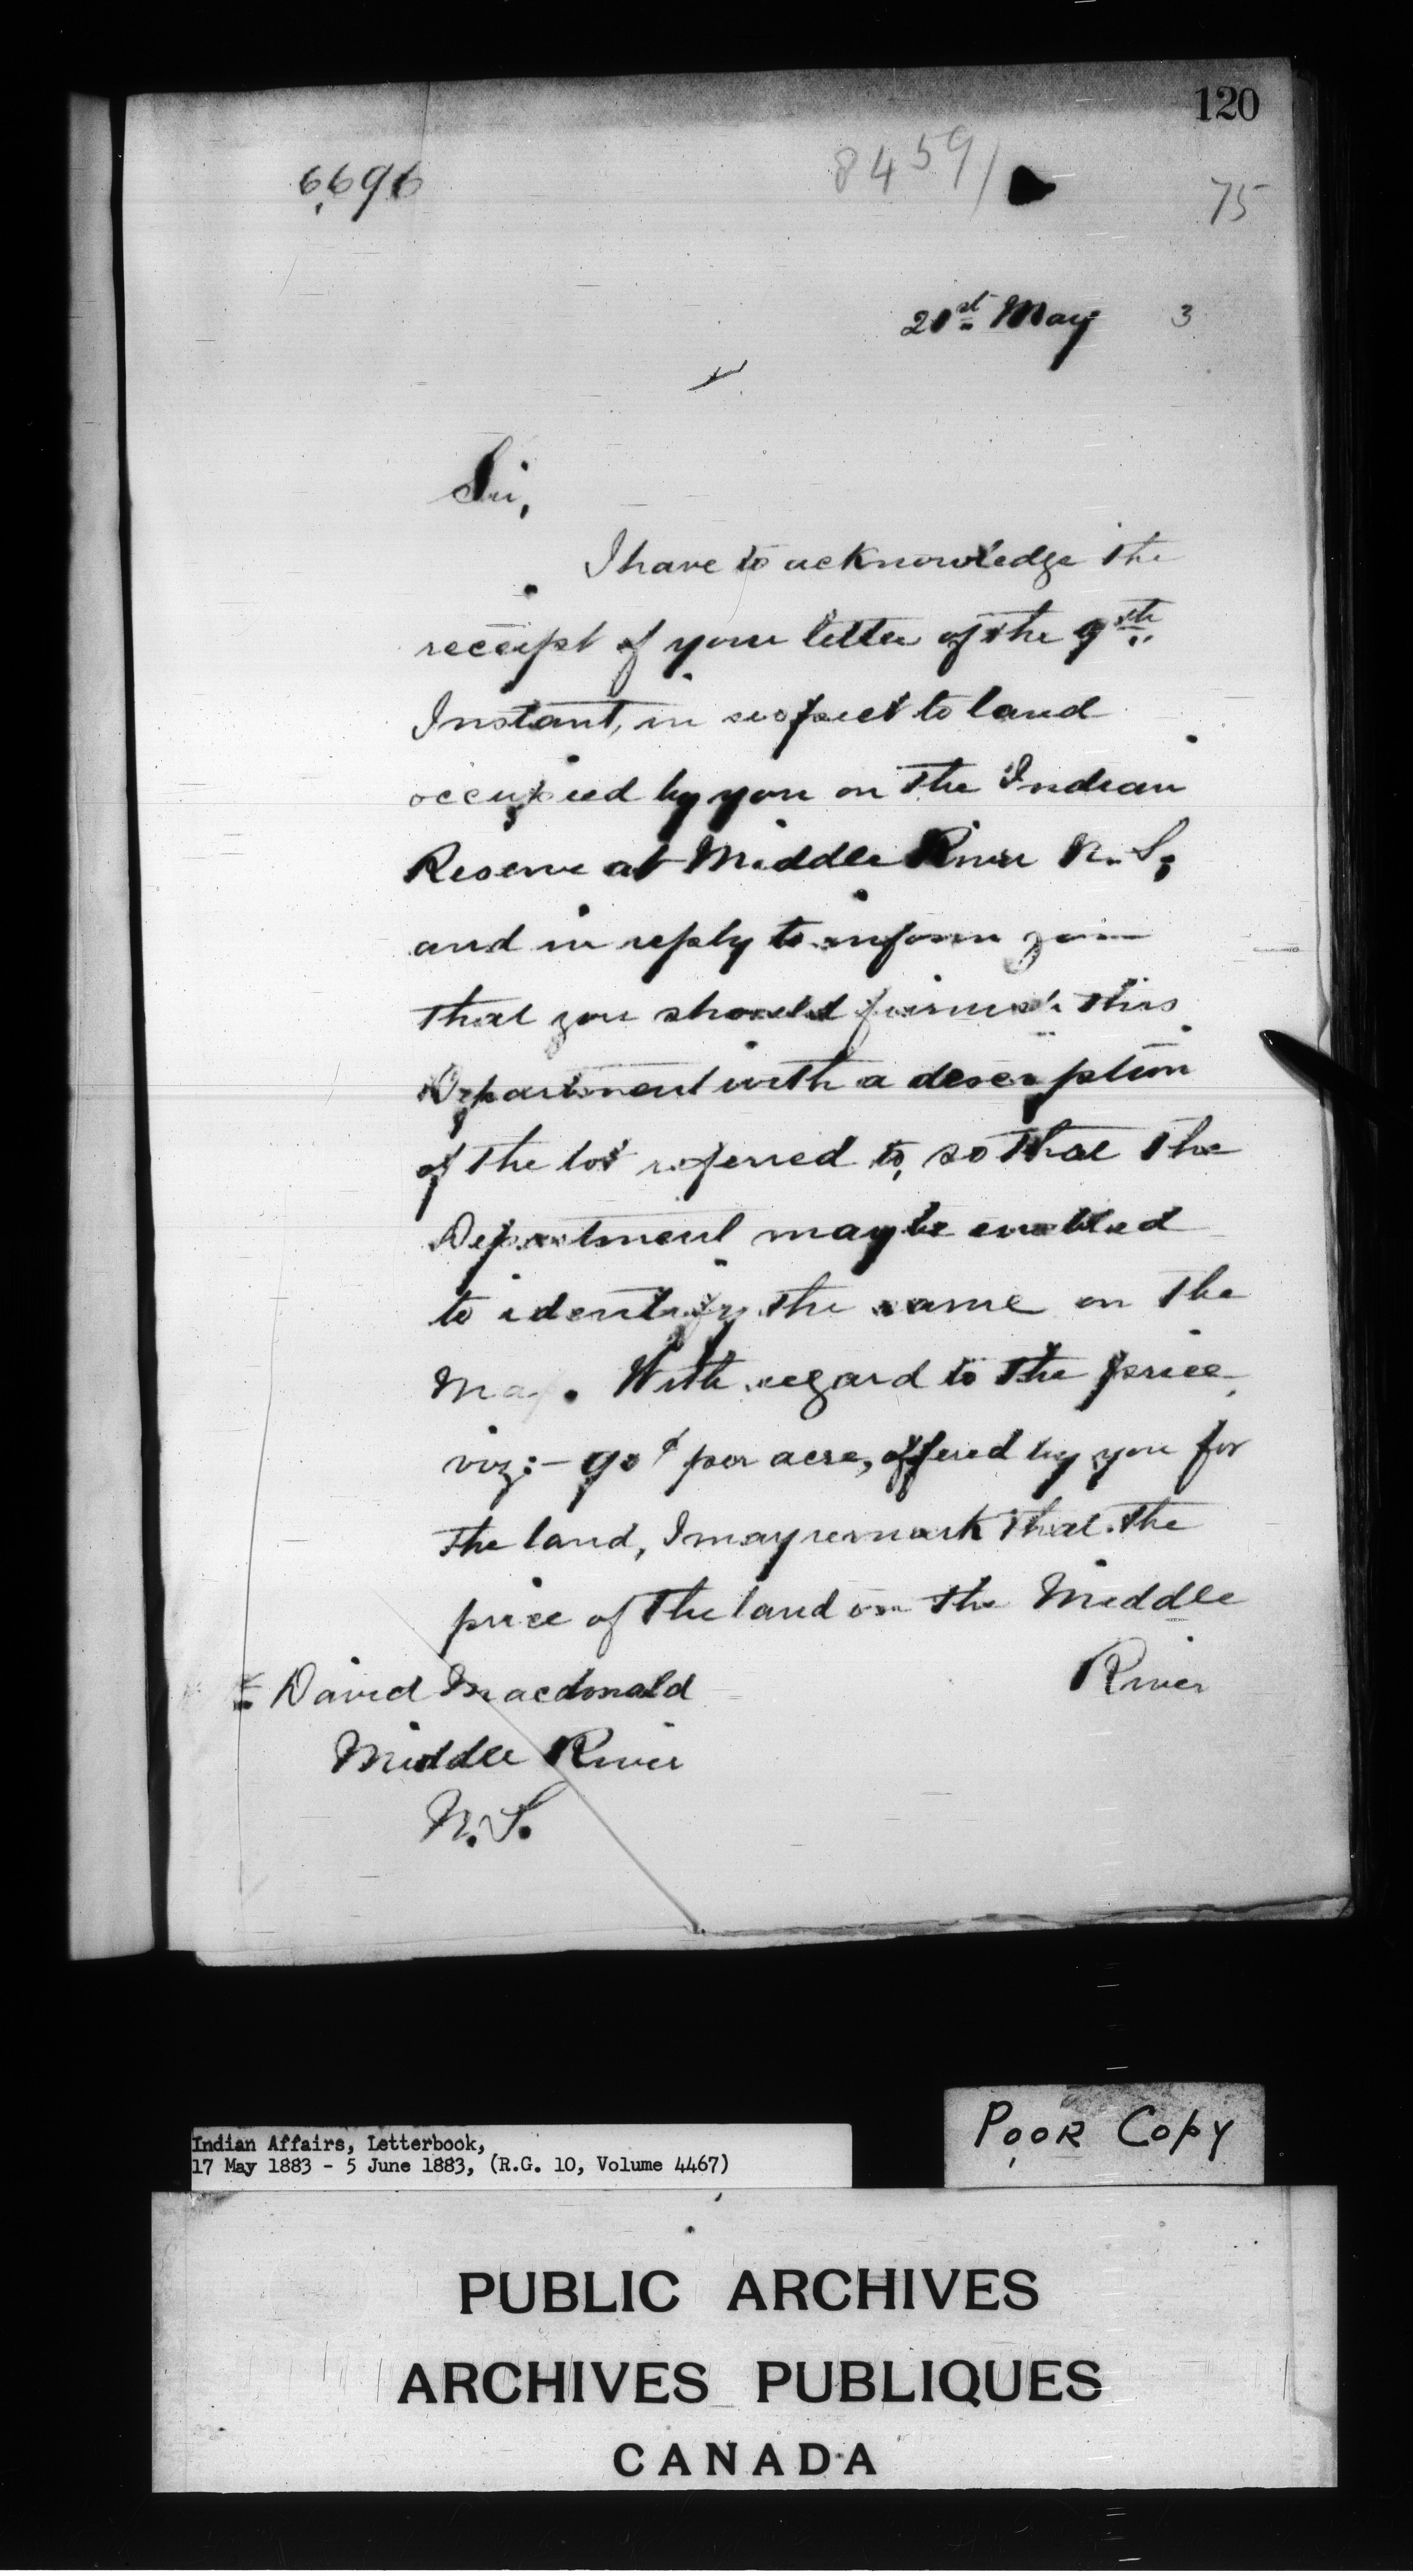 120
6696
8459/
75
21st May 3
Sir,
I have to acknowledge the
receipt of your letter of the 9th
Instant, in respect to land
occupied by you on the Indian
Reserve at Middle River N.S;
and in reply to inform you
that you should furnish this
Department with a description
of the lot referred to, so that the
Department may be enabled
to identify the same on the
Map. With regard to the price
viz:- 90¢ per acre, offered by you for
the land, I may remark that the
price of the land on the Middle
River
David Macdonald
Middle River
N.S.
POOR COPY
Indian Affairs, Letterbook,
17 May 1883 - 5 June 1883, (R.G. 10, Volume 4467)
PUBLIC ARCHIVES
ARCHIVES PUBLIQUES
CANADA